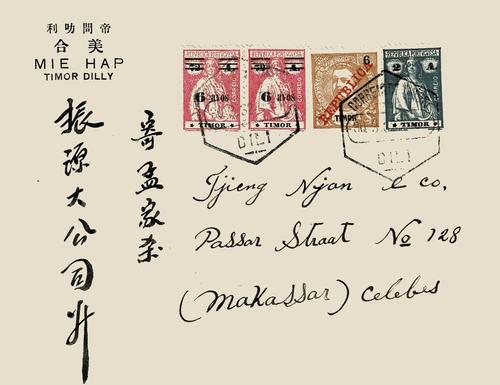 帝問叻利
美合
MIE HAP
TIMOR DILLY
寄孟家
振源大公司升
REPUBLICA PORTUGUESA
A.
6 AVOS
CORREIO
TIMOR
REPUBLICA PORTUGUESA
A.
6 AVOS
CORREIO
TIMOR
6
REPUBLICA
TIMOR
REPUBLICA PORTUGUESA
2 A.
CORREIO
TIMOR
DILI
DILI
Tjieng Njan & Co,
Passar Straat No 128
(Makassar) Celebes